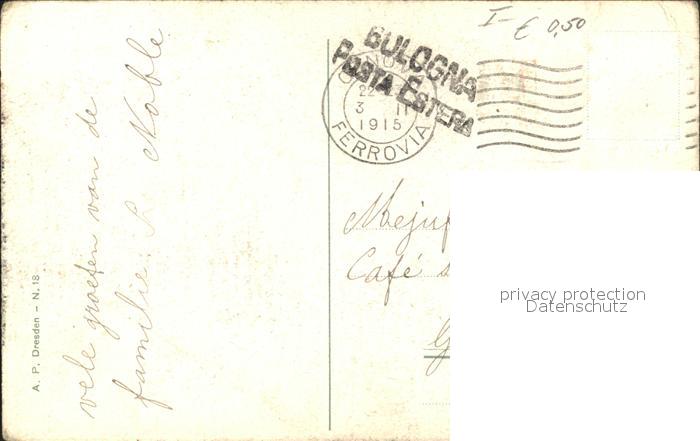 I- € 0,50
BOLOGNA
POSTA ESTERA
22
3 II
1915
FERROVIA
vele groeten van de
familie Nable
Café
A. P. Dresden – N. 18
privacy protection
Datenschutz